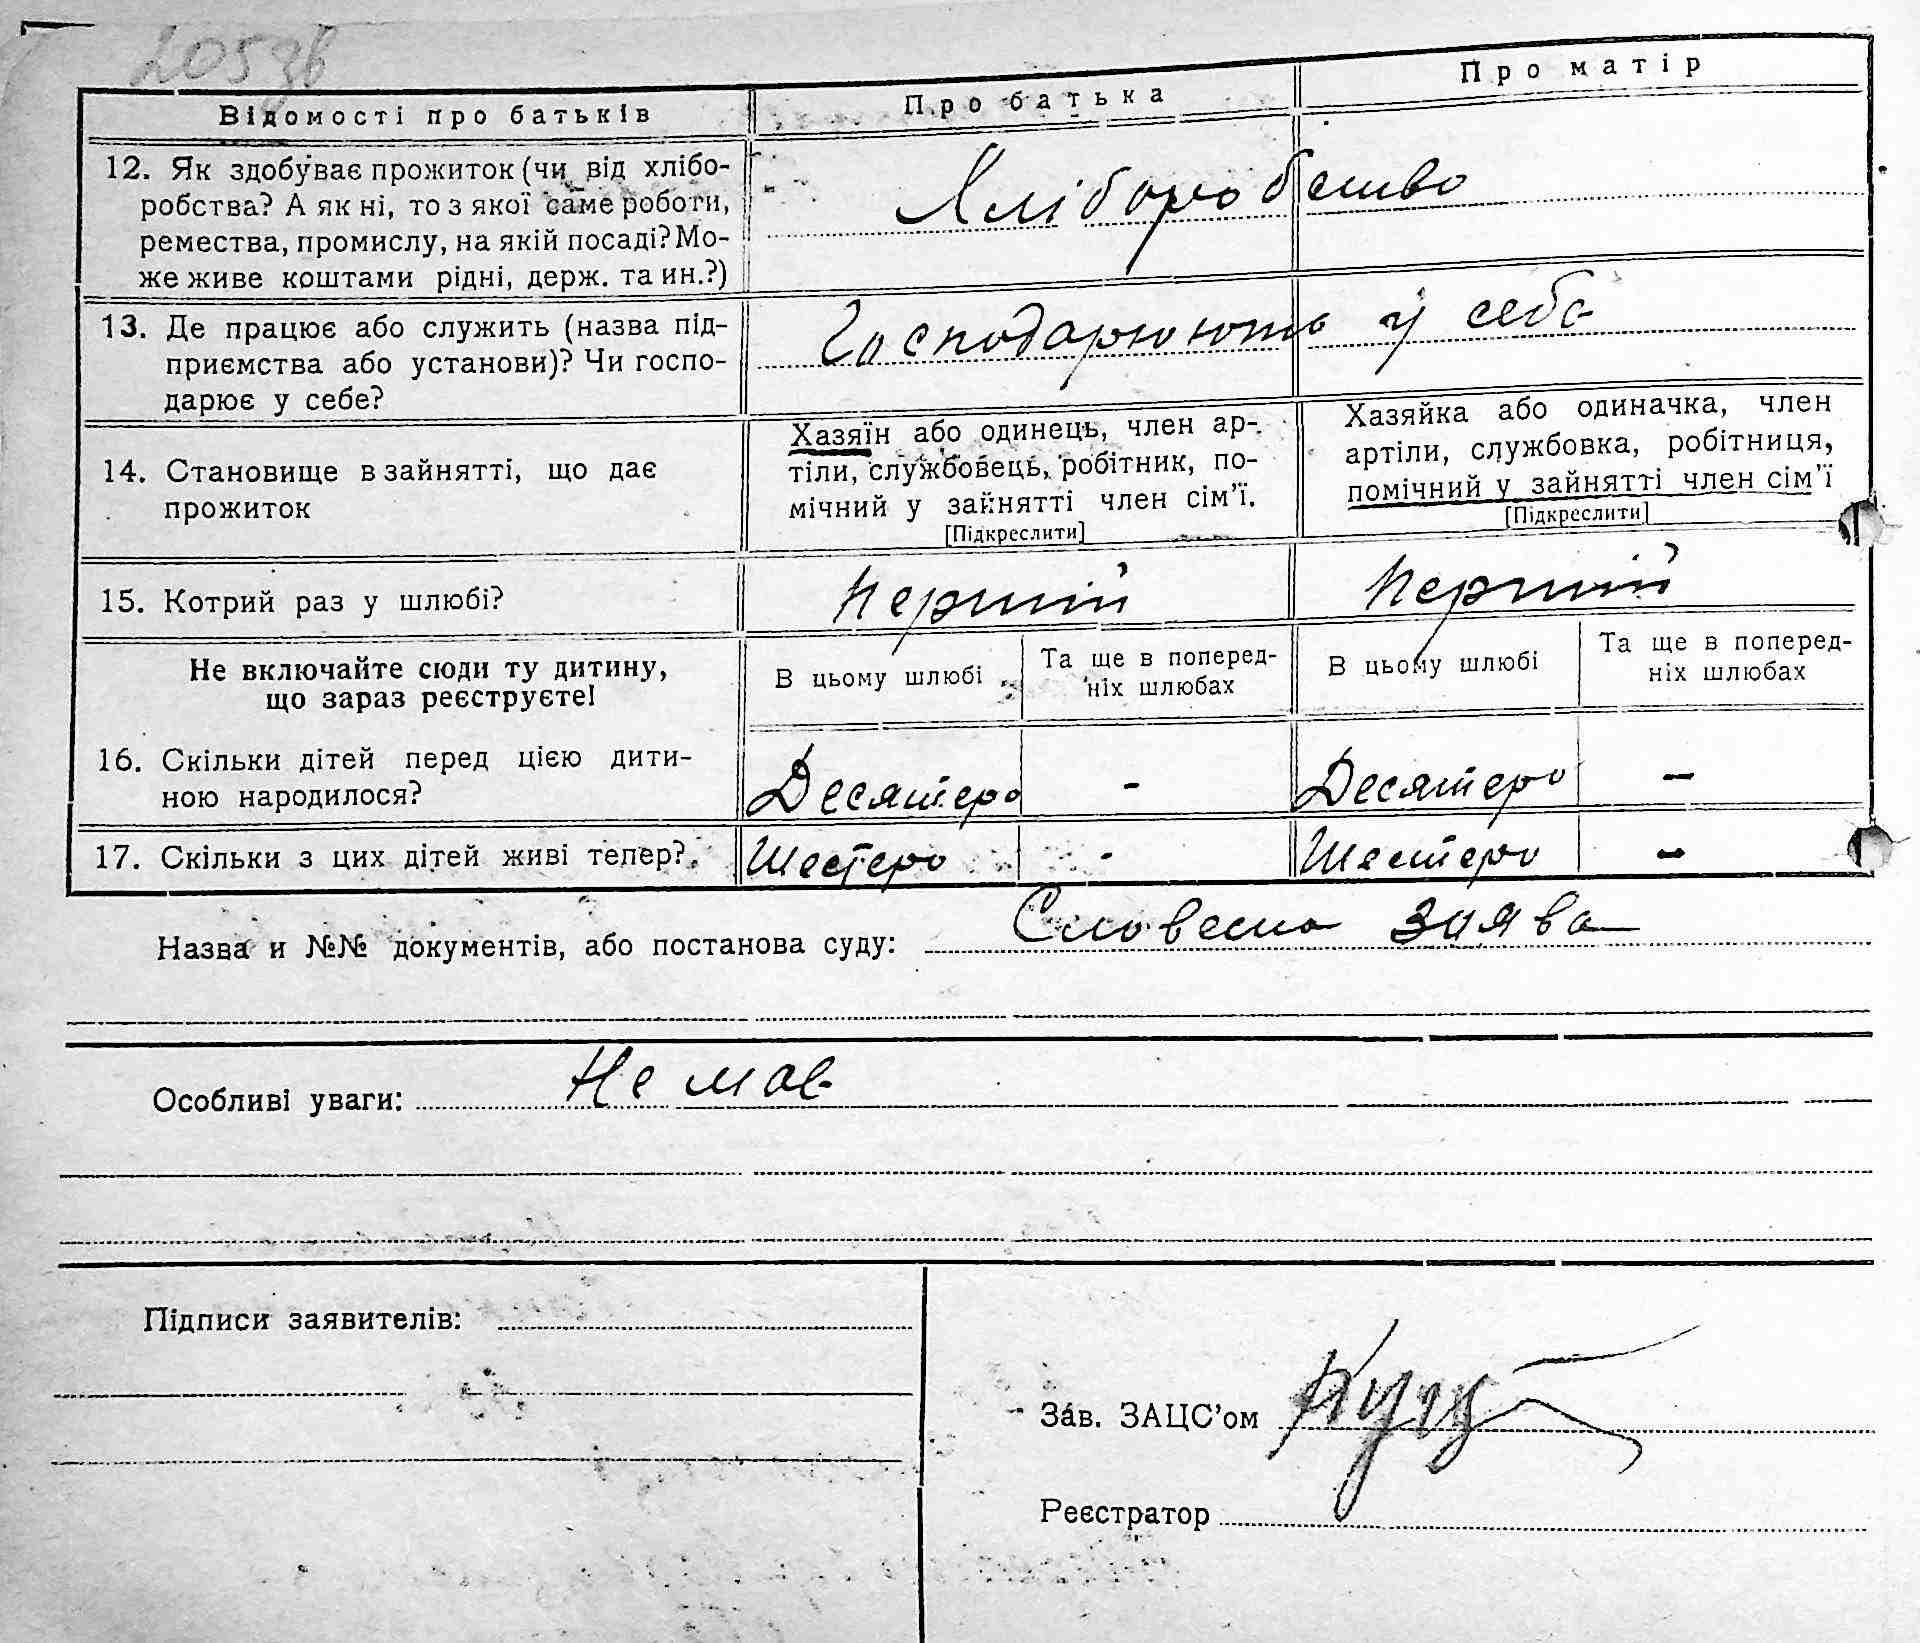 205зв
Відомості про батьків
Про батька
Про матір
12. Як здобуває прожиток (чи від хлібо-
робства? А як ні, то з якої саме роботи,
ремества, промислу, на якій посаді? Мо-
же живе коштами рідні, держ. та ин.?)
Хліборобство
13. Де працює або служить (назва під-
приємства або установи)? Чи госпо-
дарює у себе?
Господарюють у себе
14. Становище в зайнятті, що дає
прожиток
Хазяїн або одинець, член ар-
тіли, службовець, робітник, по-
мічний у зайнятті член сім'ї.
[Підкреслити]
Хазяйка або одиначка, член
артіли, службовка, робітниця,
помічний у зайнятті член сім'ї
[Підкреслити]
15. Котрий раз у шлюбі?
Перший
Перший
Не включайте сюди ту дитину,
що зараз реєструєте!
В цьому шлюбі
Та ще в поперед-
ніх шлюбах
В цьому шлюбі
Та ще в поперед-
ніх шлюбах
16. Скільки дітей перед цією дити-
ною народилося?
Десятеро
-
Десятеро
-
17. Скільки з цих дітей живі тепер?
Шестеро
-
Шестеро
-
Назва и №№ документів, або постанова суду: Словесна заява
Особливі уваги: Немає
Підписи заявителів:
Зав. ЗАЦС'ом
Реєстратор